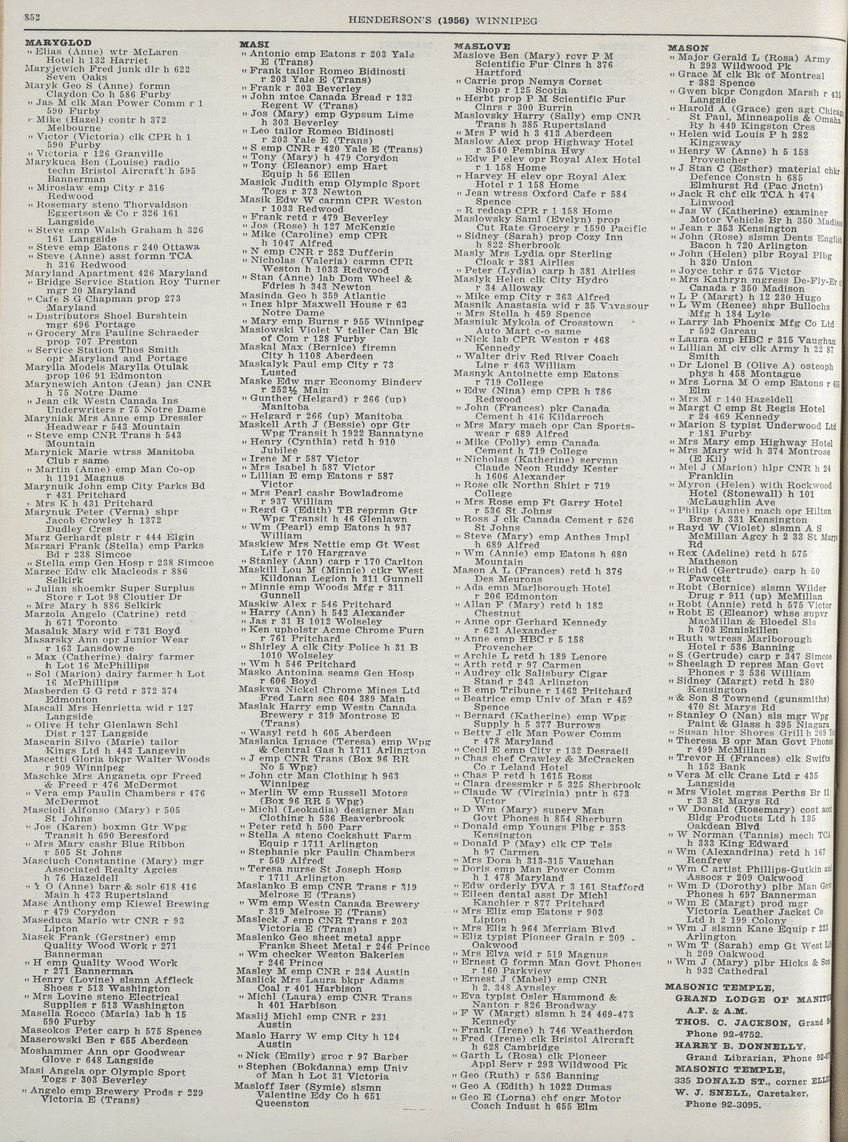 852
HENDERSON'S (1956) WINNIPEG
MARYGLOD
" Elias (Anne) wtr McLaren
Hotel h 132 Harriet
Maryjewich Fred junk dlr h 622
Seven Oaks
Maryk Geo S (Anne) formn
Claydon Co h 586 Furby
" Jas M clk Man Power Comm r 1
590 Furby
" Mike (Hazel) contr h 372
Melbourne
" Victor (Victoria) clk CPR h 1
590 Furby
" Victoria r 126 Granville
Marykuca Ben (Louise) radio
techn Bristol Aircraft h 595
Bannerman
" Miroslaw emp City r 316
Redwood
" Rosemary steno Thorvaldson
Eggertson & Co r 326 161
Langside
" Steve emp Walsh Graham h 326
161 Langside
" Steve emp Eatons r 240 Ottawa
" Steve (Anne) asst formn TCA
h 316 Redwood
Maryland Apartment 426 Maryland
" Bridge Service Station Roy Turner
mgr 20 Maryland
" Cafe S G Chapman prop 273
Maryland
" Distributors Shoel Burshtein
mgr 696 Portage
" Grocery Mrs Pauline Schraeder
prop 707 Preston
" Service Station Thos Smith
opr Maryland and Portage
Marylla Models Marylla Otulak
prop 106 91 Edmonton
Marynewich Anton (Jean) jan CNR
h 75 Notre Dame
" Jean clk Westn Canada Ins
Underwriters r 75 Notre Dame
Maryniak Mrs Anne emp Dressler
Headwear r 543 Mountain
" Steve emp CNR Trans h 543
Mountain
Marynick Marie wtrss Manitoba
Club r same
" Martin (Anne) emp Man Co-op
h 1191 Magnus
Marynuik John emp City Parks Bd
r 431 Pritchard
" Mrs K h 431 Pritchard
Marynuk Peter (Verna) shpr
Jacob Crowley h 1372
Dudley Cres
Marz Gerhardt plstr r 444 Elgin
Marzari Frank (Stella) emp Parks
Bd r 238 Simcoe
" Stella emp Gen Hosp r 238 Simcoe
Marzec Edw clk Macleods r 886
Selkirk
" Julian shoemkr Super Surplus
Store r Lot 98 Cloutier Dr
" Mrs Mary h 886 Selkirk
Marzola Angelo (Catrine) retd
h 671 Toronto
Masaluk Mary wid r 731 Boyd
Masarsky Ann opr Junior Wear
r 163 Lansdowne
" Max (Catherine) dairy farmer
h Lot 16 McPhillips
" Sol (Marion) dairy farmer h Lot
16 McPhillips
Masberden G G retd r 372 374
Edmonton
Mascall Mrs Henrietta wid r 127
Langside
" Olive H tchr Glenlawn Schl
Dist r 127 Langside
Mascarin Silvo (Marie) tailor
Kings Ltd h 443 Langevin
Mascetti Gloria bkpr Walter Woods
r 909 Winnipeg
Maschke Mrs Anganeta opr Freed
& Freed r 476 McDermot
" Vera emp Paulin Chambers r 476
McDermot
Mascioli Alfonso (Mary) r 505
St Johns
" Jos (Karen) boxmn Gtr Wpg
Transit h 690 Beresford
" Mrs Mary cashr Blue Ribbon
r 505 St Johns
Masciuch Constantine (Mary) mgr
Associated Realty Agcies
h 76 Hazeldell
" Y O (Anne) barr & solr 618 416
Main h 473 Rupertsland
Mase Anthony emp Kiewel Brewing
r 479 Corydon
Maseduca Mario wtr CNR r 93
Lipton
Masek Frank (Gerstner) emp
Quality Wood Work r 271
Bannerman
" H emp Quality Wood Work
r 271 Bannerman
" Henry (Lovine) slsmn Affleck
Shoes r 513 Washington
" Mrs Lovine steno Electrical
Supplies r 513 Washington
Masella Rocco (Maria) lab h 15
590 Furby
Maseokos Peter carp h 575 Spence
Maserowski Ben r 655 Aberdeen
Moshammer Ann opr Goodwear
Glove r 648 Langside
Masi Angela opr Olympic Sport
Togs r 303 Beverley
" Angelo emp Brewery Prods r 229
Victoria E (Trans)
MASI
" Antonio emp Eatons r 203 Yale
E (Trans)
" Frank tailor Romeo Bidinosti
r 203 Yale E (Trans)
" Frank r 303 Beverley
" John mtce Canada Bread r 132
Regent W (Trans)
" Jos (Mary) emp Gypsum Lime
h 303 Beverley
" Leo tailor Romeo Bidinosti
r 203 Yale E (Trans)
" S emp CNR r 420 Yale E (Trans)
" Tony (Mary) h 479 Corydon
" Tony (Eleanor) emp Hart
Equip h 56 Ellen
Masick Judith emp Olympic Sport
Togs r 373 Newton
Masik Edw W carmn CPR Weston
r 1033 Redwood
" Frank retd r 479 Beverley
" Jos (Rose) h 127 McKenzie
" Mike (Caroline) emp CPR
h 1047 Alfred
" N emp CNR r 252 Dufferin
" Nicholas (Valeria) carmn CPR
Weston h 1033 Redwood
" Stan (Anne) lab Dom Wheel &
Fdries h 343 Newton
Masinda Geo h 359 Atlantic
" Inez hlpr Maxwell House r 63
Notre Dame
" Mary emp Burns r 955 Winnipeg
Masiowski Violet V teller Can Bk
of Com r 128 Furby
Maskal Max (Bernice) firemn
City h 1108 Aberdeen
Maskalyk Paul emp City r 73
Lusted
Maske Edw mgr Economy Bindery
r 252½ Main
" Gunther (Helgard) r (up) 266
Manitoba
" Helgard r 266 (up) Manitoba
Maskell Arth J (Bessie) opr Gtr
Wpg Transit h 1922 Bannatyne
" Henry (Cynthia) retd h 910
Jubilee
" Irene M r 587 Victor
" Mrs Isabel h 587 Victor
" Lillian E emp Eatons r 587
Victor
" Mrs Pearl cashr Bowladrome
r 937 William
" Regd G (Edith) TB reprmn Gtr
Wpg Transit h 46 Glenlawn
" Wm (Pearl) emp Eatons h 937
William
Maskiew Mrs Nettie emp Gt West
Life r 170 Hargrave
" Stanley (Ann) carp r 170 Carlton
Maskill Lou M (Minnie) ctkr West
Kildonan Legion h 311 Gunnell
" Minnie emp Woods Mfg r 311
Gunnell
Maskiw Alex r 546 Pritchard
" Harry (Ann) h 542 Alexander
" Jas r 31 B 1012 Wolseley
" Ken upholstr Acme Chrome Furn
r 761 Pritchard
" Shirley A clk City Police h 31 B
1010 Wolseley
" Wm h 546 Pritchard
Masko Antonina seams Gen Hosp
r 606 Boyd
Maskwa Nickel Chrome Mines Ltd
Fred Larn sec 604 389 Main
Maslak Harry emp Westn Canada
Brewery r 319 Montrose E
(Trans)
" Wasyl retd h 605 Aberdeen
Maslanka Ignace (Teresa) emp Wpg
& Central Gas h 1711 Arlington
" J emp CNR Trans (Box 96 RR
No 5 Wpg)
" John ctr Man Clothing h 963
Winnipeg
" Merlin W emp Russell Motors
(Box 96 RR 5 Wpg)
" Michl (Leokadia) designer Man
Clothing h 536 Beaverbrook
" Peter retd h 500 Parr
" Stella A steno Cockshutt Farm
Equip r 1711 Arlington
" Stephanie pkr Paulin Chambers
r 569 Alfred
" Teresa nurse St Joseph Hosp
r 1711 Arlington
Maslanko B emp CNR Trans r 319
Melrose E (Trans)
" Wm emp Westn Canada Brewery
r 319 Melrose E (Trans)
Masleck J emp CNR Trans r 203
Victoria E (Trans)
Maslenko Geo sheet metal appr
Franks Sheet Metal r 246 Prince
" Wm checker Weston Bakeries
r 246 Prince
Masley M emp CNR r 234 Austin
Maslick Mrs Laura bkpr Adams
Coal r 401 Harbison
" Michl (Laura) emp CNR Trans
h 401 Harbison
Maslij Michl emp CNR r 231
Austin
Maslo Harry W emp City h 124
Austin
" Nick (Emily) groc r 97 Barber
" Stephen (Bokdanna) emp Univ
of Man h Lot 31 Victoria
Masloff Iser (Symie) slsmn
Valentine Edy Co h 651
Queenston
MASLOVE
Maslove Ben (Mary) rcvr P M
Scientific Fur Clnrs h 376
Hartford
" Carrie prop Nemys Corset
Shop r 125 Scotia
" Herbt prop P M Scientific Fur
Clnrs r 300 Burrin
Maslovsky Harry (Sally) emp CNR
Trans h 385 Rupertsland
" Mrs P wid h 3 413 Aberdeen
Maslow Alex prop Highway Hotel
r 3540 Pembina Hwy
" Edw P elev opr Royal Alex Hotel
r 1 158 Home
" Harvey H elev opr Royal Alex
Hotel r 1 158 Home
" Jean wtress Oxford Cafe r 584
Spence
" R redcap CPR r 1 158 Home
Maslowsky Saml (Evelyn) prop
Cut Rate Grocery r 1590 Pacific
" Sidney (Sarah) prop Cozy Inn
h 822 Sherbrook
Masly Mrs Lydia opr Sterling
Cloak r 381 Airlies
" Peter (Lydia) carp h 381 Airlies
Maslyk Helen clk City Hydro
r 34 Alloway
" Mike emp City r 363 Alfred
Masnik Anastasia wid r 35 Vavasour
" Mrs Stella h 459 Spence
Masniuk Mykola of Crosstown
Auto Mart c-o same
" Nick lab CPR Weston r 468
Kennedy
" Walter driv Red River Coach
Line r 463 William
Masnyk Antoinette emp Eatons
r 719 College
" Edw (Nina) emp CPR h 786
Redwood
" John (Frances) pkr Canada
Cement h 416 Kildarroch
" Mrs Mary mach opr Can Sports-
wear r 689 Alfred
" Mike (Polly) emp Canada
Cement h 719 College
" Nicholas (Katherine) servmn
Claude Neon Ruddy Kester
h 1606 Alexander
" Rose clk Northn Shirt r 719
College
" Mrs Rose emp Ft Garry Hotel
r 536 St Johns
" Ross J clk Canada Cement r 526
St Johns
" Steve (Mary) emp Anthes Impl
h 689 Alfred
" Wm (Annie) emp Eatons h 680
Mountain
Mason A L (Frances) retd h 376
Des Meurons
" Ada emp Marlborough Hotel
r 206 Edmonton
" Allan F (Mary) retd h 182
Chestnut
" Anne opr Gerhard Kennedy
r 621 Alexander
" Anne emp HBC r 5 158
Provencher
" Archie L retd h 189 Lenore
" Arth retd r 97 Carmen
" Audrey clk Salisbury Cigar
Stand r 243 Arlington
" B emp Tribune r 1462 Pritchard
" Beatrice emp Univ of Man r 45?
Spence
" Bernard (Katherine) emp Wpg
Supply h 5 377 Burrows
" Betty J clk Man Power Comm
r 478 Maryland
" Cecil E emp City r 132 Desraeli
" Chas chef Crawley & McCracken
Co r Leland Hotel
" Chas P retd h 1615 Ross
" Clara dressmkr r 5 325 Sherbrook
" Claude W (Virginia) pntr h 673
Victor
" D Wm (Mary) superv Man
Govt Phones h 854 Sherburn
" Donald emp Youngs Plbr r 353
Kensington
" Donald P (May) clk CP Tels
h 97 Carmen
" Mrs Dora h 313-315 Vaughan
" Doris emp Man Power Comm
h 1 478 Maryland
" Edw orderly DVA r 3 161 Stafford
" Eileen dental asst Dr Michl
Kanchier r 877 Pritchard
" Mrs Eliz emp Eatons r 903
Lipton
" Mrs Eliz h 964 Merriam Blvd
" Eliz typist Pioneer Grain r 209
Oakwood
" Mrs Elva wid r 519 Magnus
" Ernest G formn Man Govt Phones
r 160 Parkview
" Ernest J (Mabel) emp CNR
h 2 348 Aynsley
" Eva typist Osler Hammond &
Nanton r 826 Broadway
" F W (Margt) slsmn h 24 469-473
Kennedy
" Frank (Irene) h 746 Weatherdon
" Fred (Irene) clk Bristol Aircraft
h 628 Cambridge
" Garth L (Rosa) clk Pioneer
Appl Serv r 293 Wildwood Pk
" Geo (Ruth) r 536 Banning
" Geo A (Edith) h 1022 Dumas
" Geo E (Lorna) chf engr Motor
Coach Indust h 655 Elm
MASON
" Major Gerald L (Rosa) Army
h 293 Wildwood Pk
" Grace M clk Bk of Montreal
r 382 Spence
" Gwen bkpr Congdon Marsh r 435
Langside
" Harold A (Grace) gen agt Chicago
St Paul, Minneapolis & Omaha
Ry h 449 Kingston Cres
" Helen wid Louis P h 282
Kingsway
" Henry W (Anne) h 5 158
Provencher
" J Stan C (Esther) material chkr
Defence Constn h 685
Elmhurst Rd (Pac Jnctn)
" Jack R chf clk TCA h 474
Linwood
" Jas W (Katherine) examiner
Motor Vehicle Br h 350 Madison
" Jean r 353 Kensington
" John (Rose) slsmn Dents English
Bacon h 720 Arlington
" John (Helen) plbr Royal Plbg
h 320 Union
" Joyce tchr r 575 Victor
" Mrs Kathryn mgress De-Fly-Er
Canada r 350 Madison
" L P (Margt) h 12 230 Hugo
" L Wm (Renee) shpr Bullochs
Mfg h 184 Lyle
" Larry lab Phoenix Mfg Co Ltd
r 592 Gareau
" Laura emp HBC r 315 Vaughan
" Lillian M civ clk Army h 22 87
Smith
" Dr Lionel B (Olive A) osteoph
phys h 458 Montague
" Mrs Lorna M O emp Eatons r
Elm
" Mrs M r 140 Hazeldell
" Margt C emp St Regis Hotel
r 24 469 Kennedy
" Marion S typist Underwood Ltd
r 181 Furby
" Mrs Mary emp Highway Hotel
" Mrs Mary wid h 374 Montrose
(E Kil)
" Mel J (Marion) hlpr CNR h 24
Franklin
" Myron (Helen) with Rockwood
Hotel (Stonewall) h 101
McLaughlin Ave
" Philip (Anne) mach opr Hilton
Bros h 331 Kensington
" Rayd W (Violet) slsmn A S
McMillan Agcy h 2 33 St Marys
Rd
" Rex (Adeline) retd h 575
Matheson
" Richd (Gertrude) carp h 50
Fawcett
" Robt (Bernice) slsmn Wilder
Drug r 911 (up) McMillan
" Robt (Annie) retd h 575 Victor
" Robt E (Eleanor) whse supvr
MacMillan & Bloedel Sls
h 703 Enniskillen
" Ruth wtress Marlborough
Hotel r 536 Banning
" S (Gertrude) carp r 347 Simcoe
" Sheelagh D repres Man Govt
Phones r 3 536 William
" Sidney (Margt) retd h 280
Kensington
" & Son S Townend (gunsmiths)
470 St Marys Rd
" Stanley O (Nan) sls mgr Wpg
Paint & Glass h 395 Niagara
" Susan hlpr Shores Grill h 269
" Theresa B opr Man Govt Phones
r 499 McMillan
" Trevor H (Frances) clk Swifts
h 152 Bank
" Vera M clk Crane Ltd r 435
Langside
" Mrs Violet mgrss Perths Br 11
r 33 St Marys Rd
" W Donald (Rosemary) cost acct
Bldg Products Ltd h 135
Oakdean Blvd
" W Norman (Tannis) mech TCA
h 333 King Edward
" Wm (Alexandrina) retd h 167
Renfrew
" Wm C artist Phillips-Gutkin and
Assocs r 209 Oakwood
" Wm D (Dorothy) plbr Man Govt
Phones h 697 Bannerman
" Wm E (Margt) prod mgr
Victoria Leather Jacket Co
Ltd h 2 199 Colony
" Wm J slsmn Kane Equip r 233
Arlington
" Wm T (Sarah) emp Gt West Life
h 209 Oakwood
" Wm J (Mary) plbr Hicks & Son
h 932 Cathedral
MASONIC TEMPLE,
GRAND LODGE OF MANITOBA
A.F. & A.M.
THOS. C. JACKSON, Grand
Phone 92-4752.
HARRY B. DONNELLY,
Grand Librarian, Phone
MASONIC TEMPLE,
335 DONALD ST., corner ELLICE
W. J. SNELL, Caretaker,
Phone 92-3095.